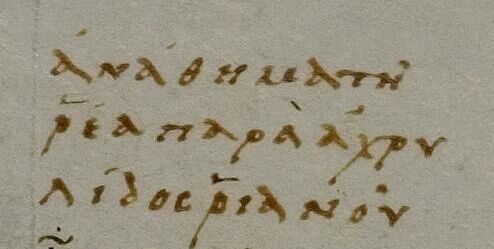 ἀνάθημα τῆ
ῥέα παρὰ ἀχρυ
λίδος ῥιανοῦ